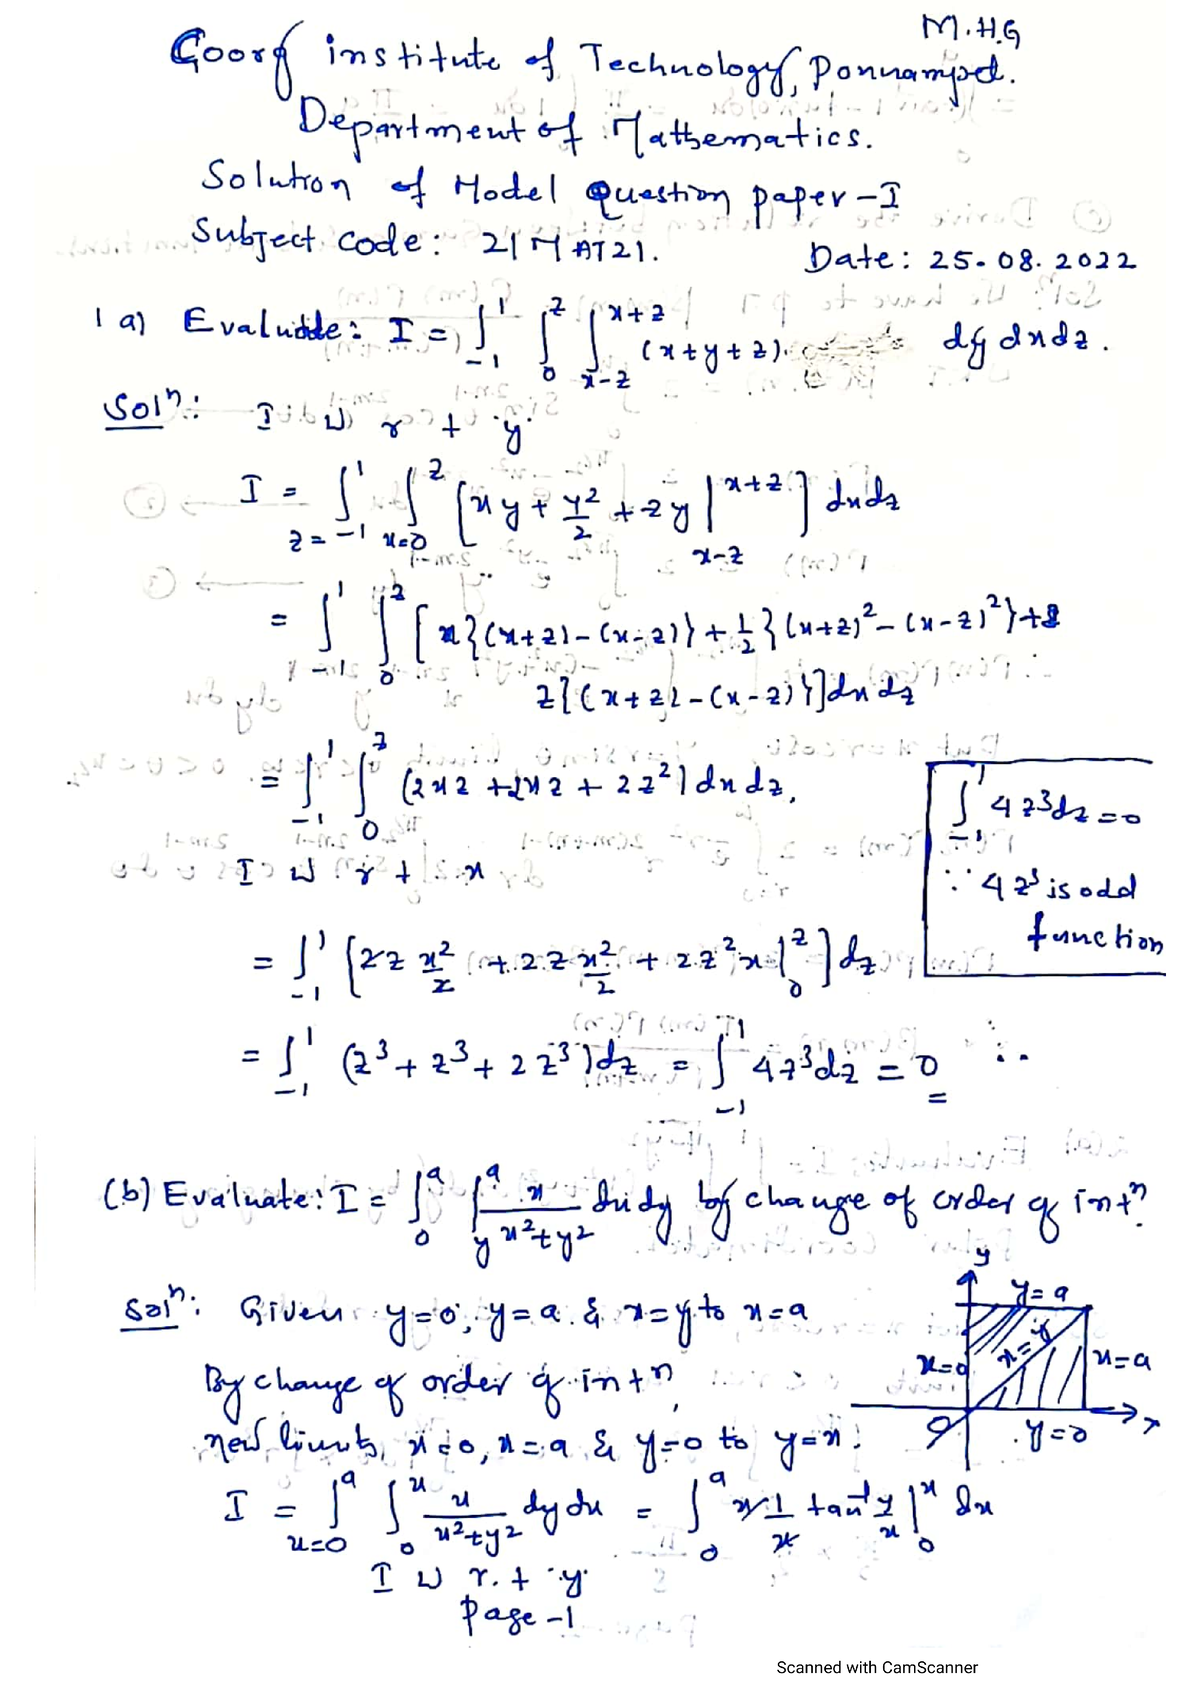 M.H.G
Coorg institute of Technology, Ponnampet.
Department of Mathematics.
Solution of Model Question paper -I
Subject code: 21MAT21.
Date: 25.08.2022
1 a) Evaluate: I = ∫_{-1}^{1} ∫_0^z ∫_{x-z}^{x+z} (x+y+z) dy dx dz.
Solⁿ: I w r t y
I = ∫_{z=-1}^{1} ∫_{x=0}^{z} [xy + y²/2 + zy |_{x-z}^{x+z}] dx dz
= ∫_{-1}^{1} ∫_0^z [x{(x+z)-(x-z)} + 1/2 {(x+z)² - (x-z)²} +
z{(x+z)-(x-z)}] dx dz
= ∫_{-1}^{1} ∫_0^z (2xz + 2xz + 2z²) dx dz,
∫_{-1}^{1} 4z³dz = 0
∵ 4z³ is odd
function
I w r t x
= ∫_{-1}^{1} [2z x²/2 + 2z x²/2 + 2z²x |_0^z] dz
= ∫_{-1}^{1} (z³ + z³ + 2z³) dz = ∫_{-1}^{1} 4z³dz = 0 ∴
(b) Evaluate: I = ∫_0^a ∫_y^a x/(x²+y²) dx dy by change of order of intⁿ.
Solⁿ: Given y=0, y=a & x=y to x=a
By change of order of intⁿ,
new limits, x=0, x=a & y=0 to y=x.
y
y=a
x=y
x=0
x=a
O
y=0
x
I = ∫_{x=0}^{a} ∫_0^x x/(x²+y²) dy dx = ∫_0^a x 1/x tan⁻¹ y/x |_0^x dx
I w r. t y.
Page -1
Scanned with CamScanner